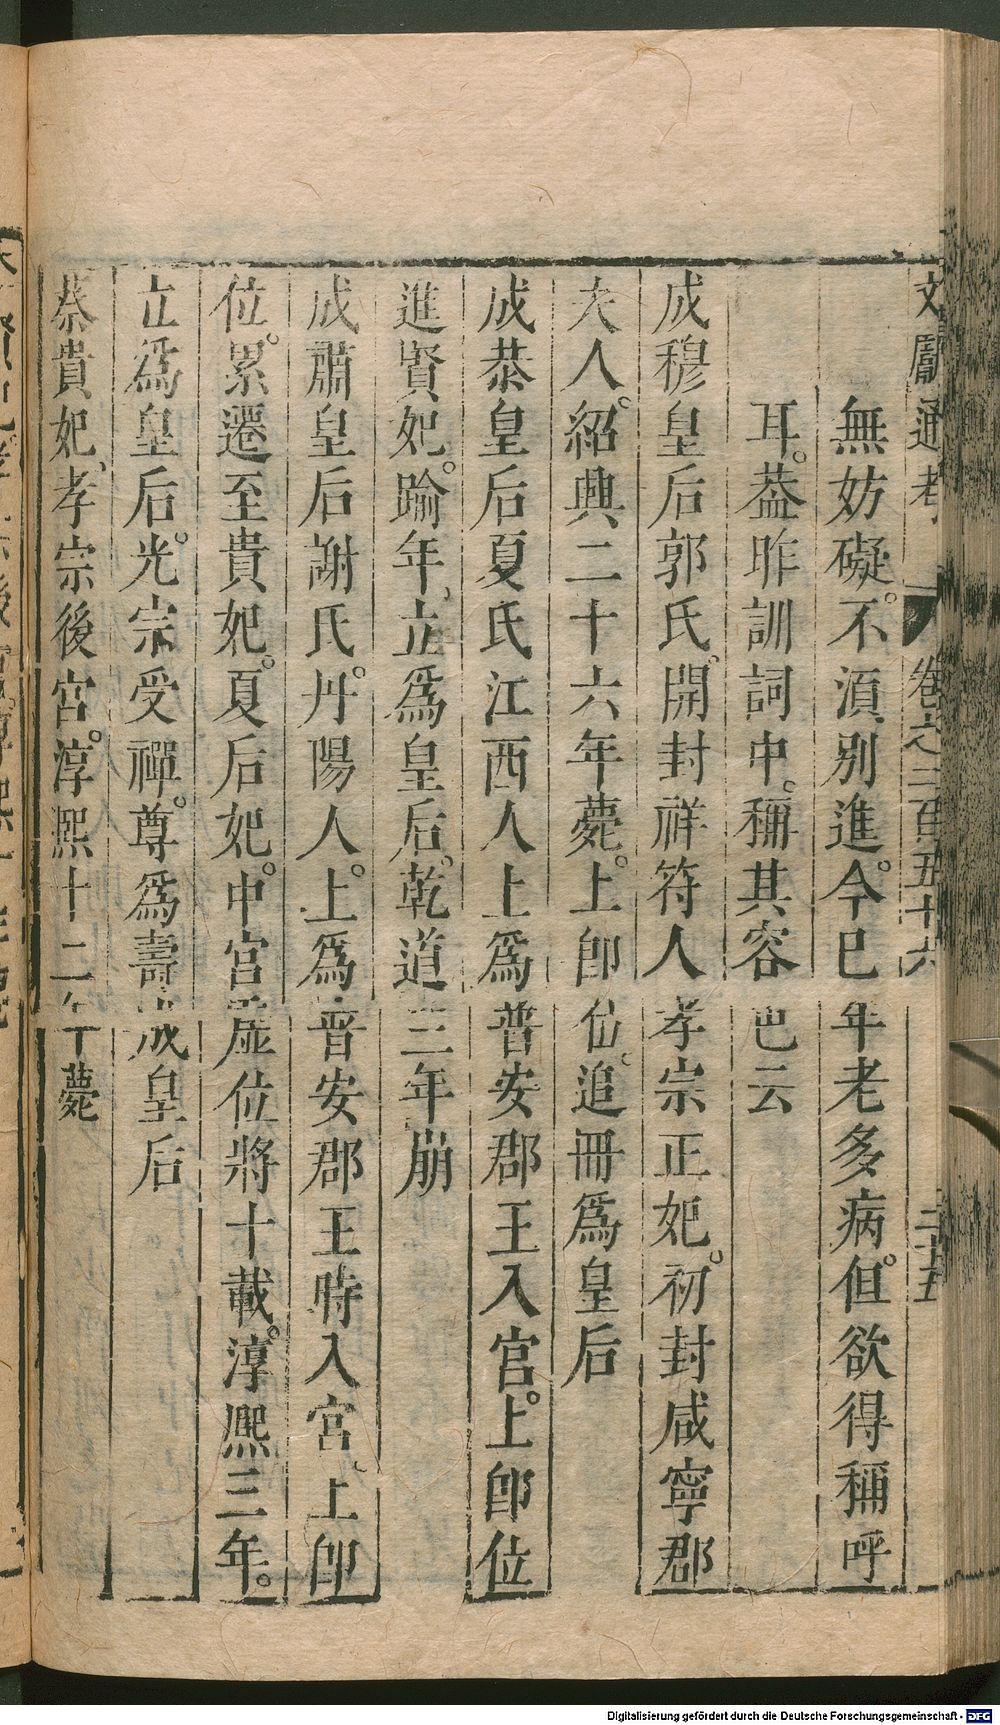 文獻通考 卷之二百五十六 二十五
無妨礙。不湏別進。今已年老多病。但欲得稱呼
耳。葢昨訓詞中。稱其容也云
成穆皇后郭氏。開封祥符人孝宗正妃。初封咸寧郡
夫人。紹興二十六年薨。上卽位。追冊爲皇后
成恭皇后夏氏江西人上爲普安郡王入宮。上卽位
進賢妃。踰年、立爲皇后。乾道三年崩
成肅皇后謝氏。丹陽人。上爲普安郡王時入宮、上卽
位。累遷至貴妃。夏后妃。中宮虛位將十載。淳熙三年。
立爲皇后。光宗受禪。尊爲壽成皇后
蔡貴妃、孝宗後宮。淳熙十二年薨
Digitalisierung gefördert durch die Deutsche Forschungsgemeinschaft - DFG